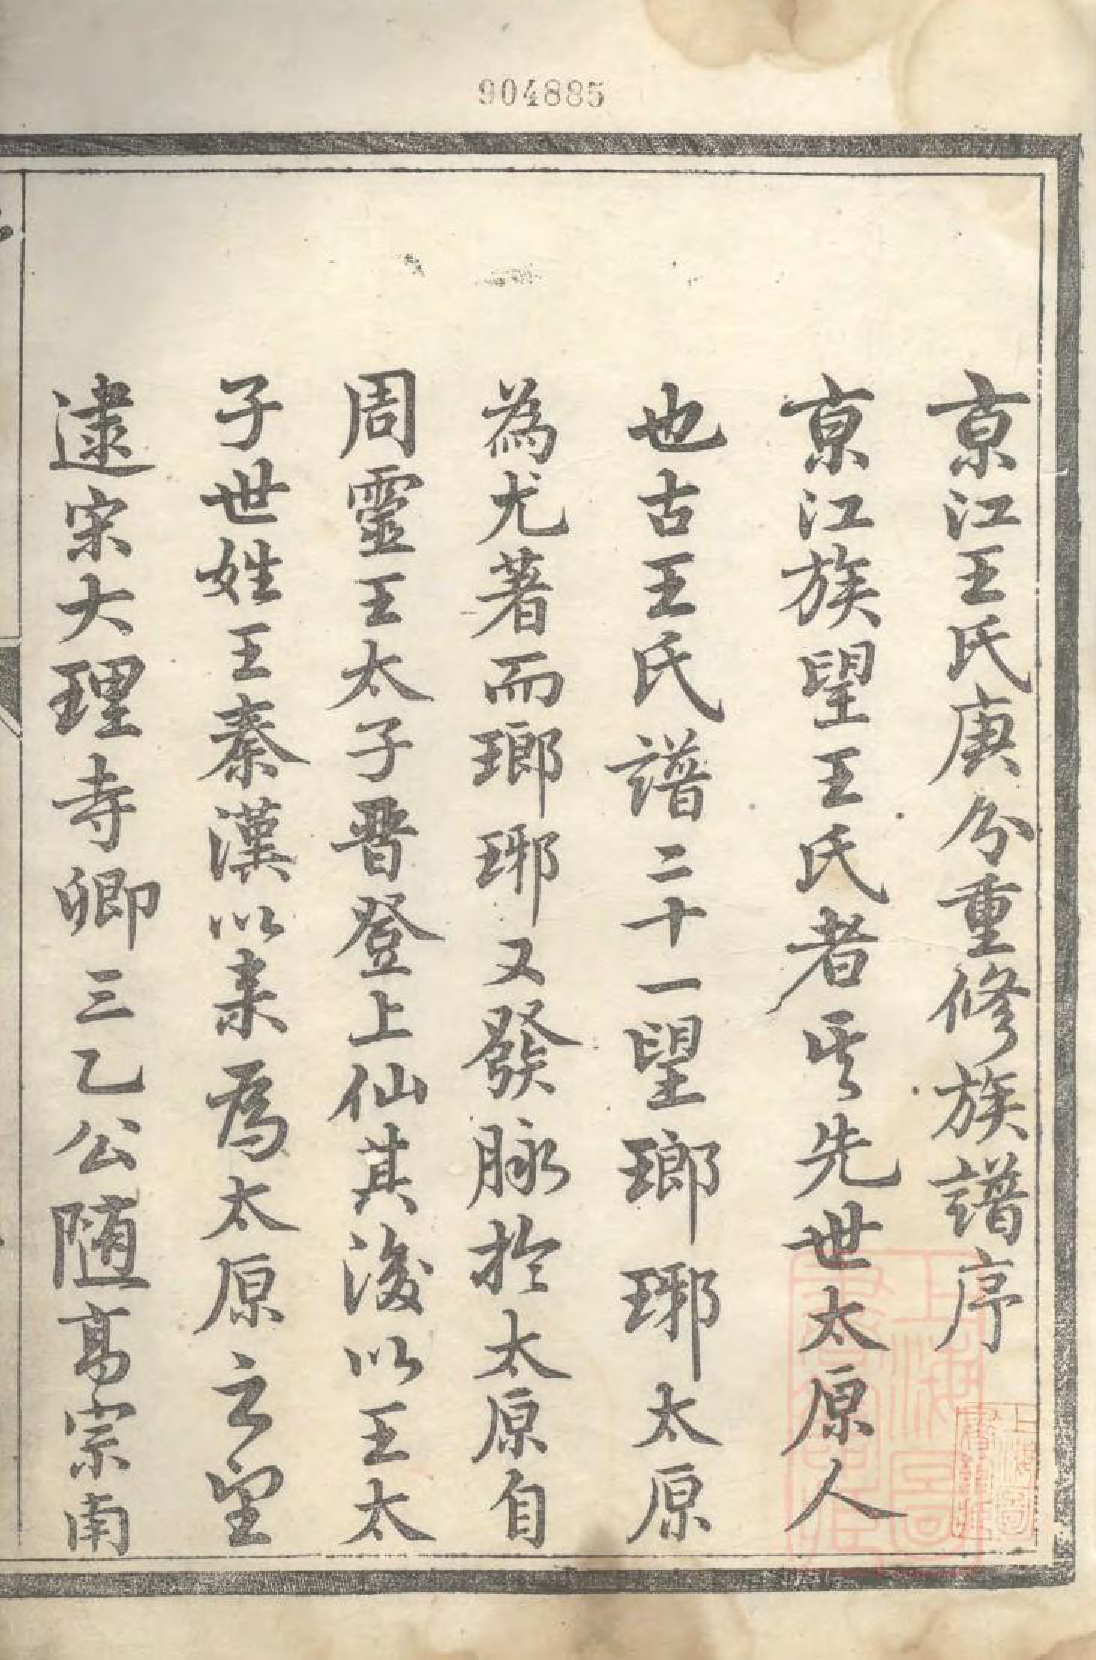 904885
京江王氏庚分重修族譜序
京江族望王氏者其先世太原人
也古王氏譜二十一望瑯琊太原
為尤著而瑯琊又發脉於太原自
周靈王太子晋登上仙其後以王太
子世姓王秦漢以来為太原之望
逮宋大理寺卿三乙公随高宗南
上海圖書館藏